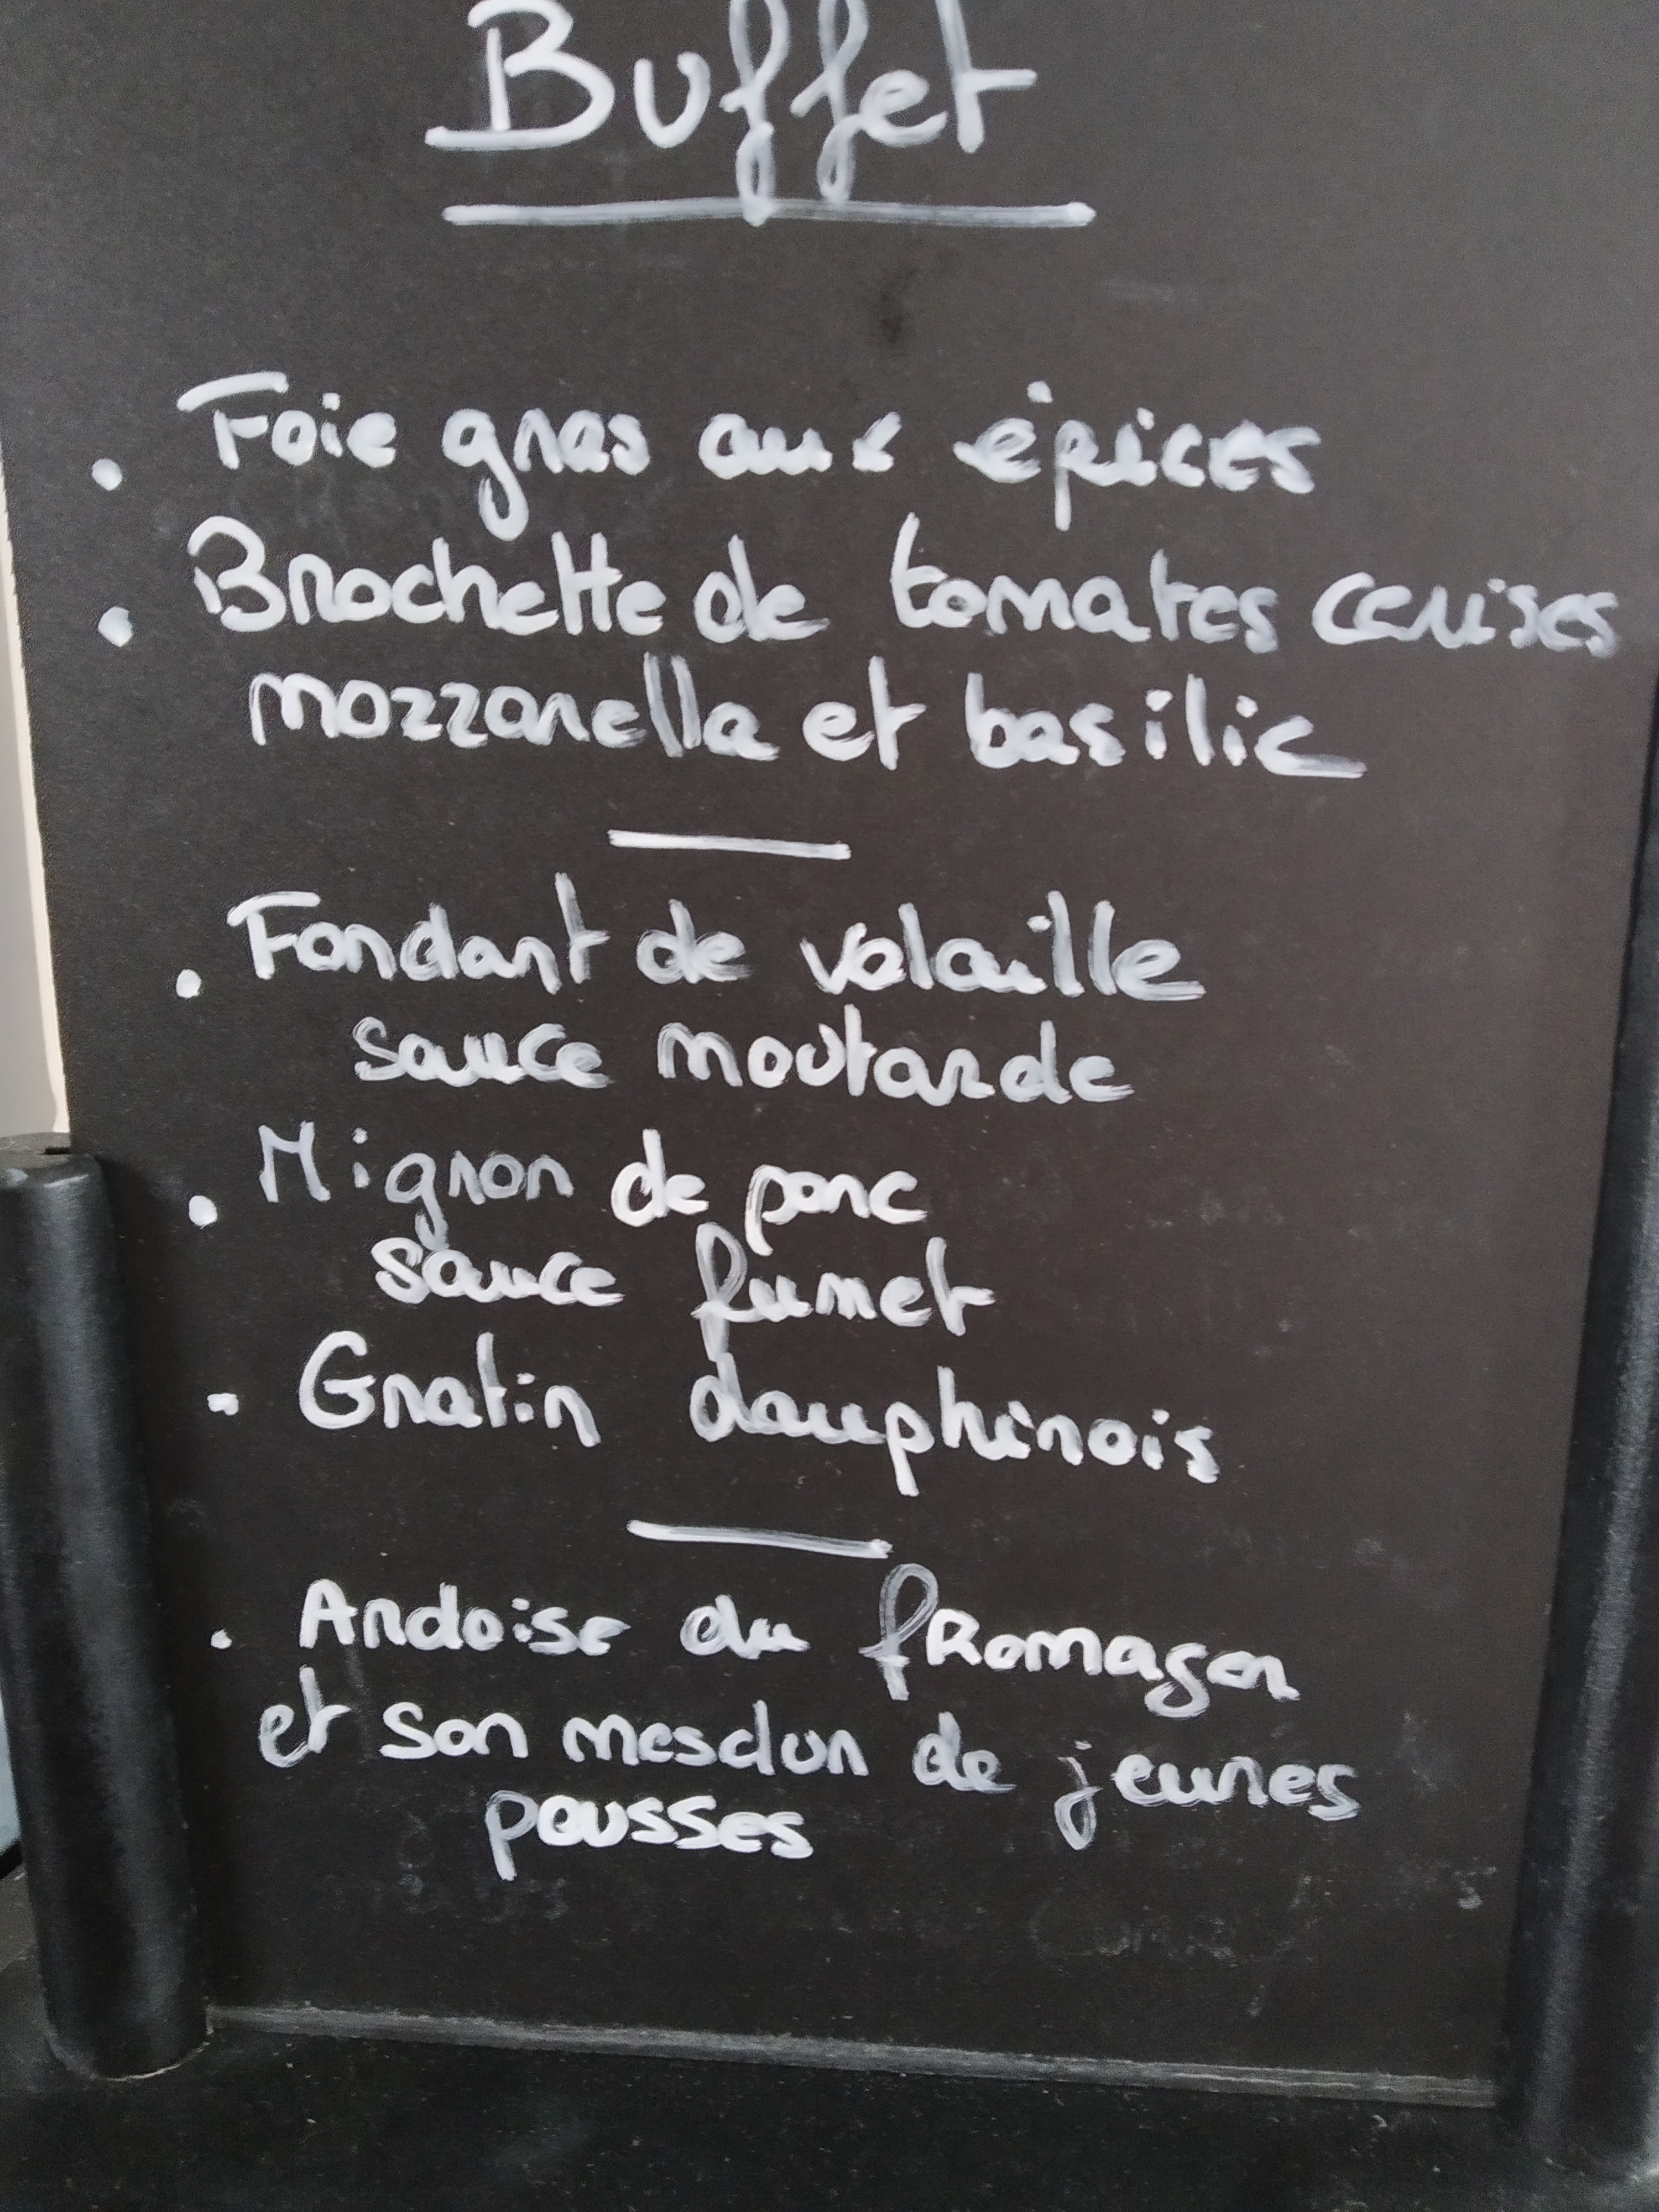 Buffet
. Foie gras aux épices
. Brochette de tomates cerises
mozzarella et basilic
. Fondant de volaille
sauce moutarde
. Mignon de porc
sauce fumet
. Gratin dauphinois
. Ardoise du fromager
et son mesclun de jeunes
pousses